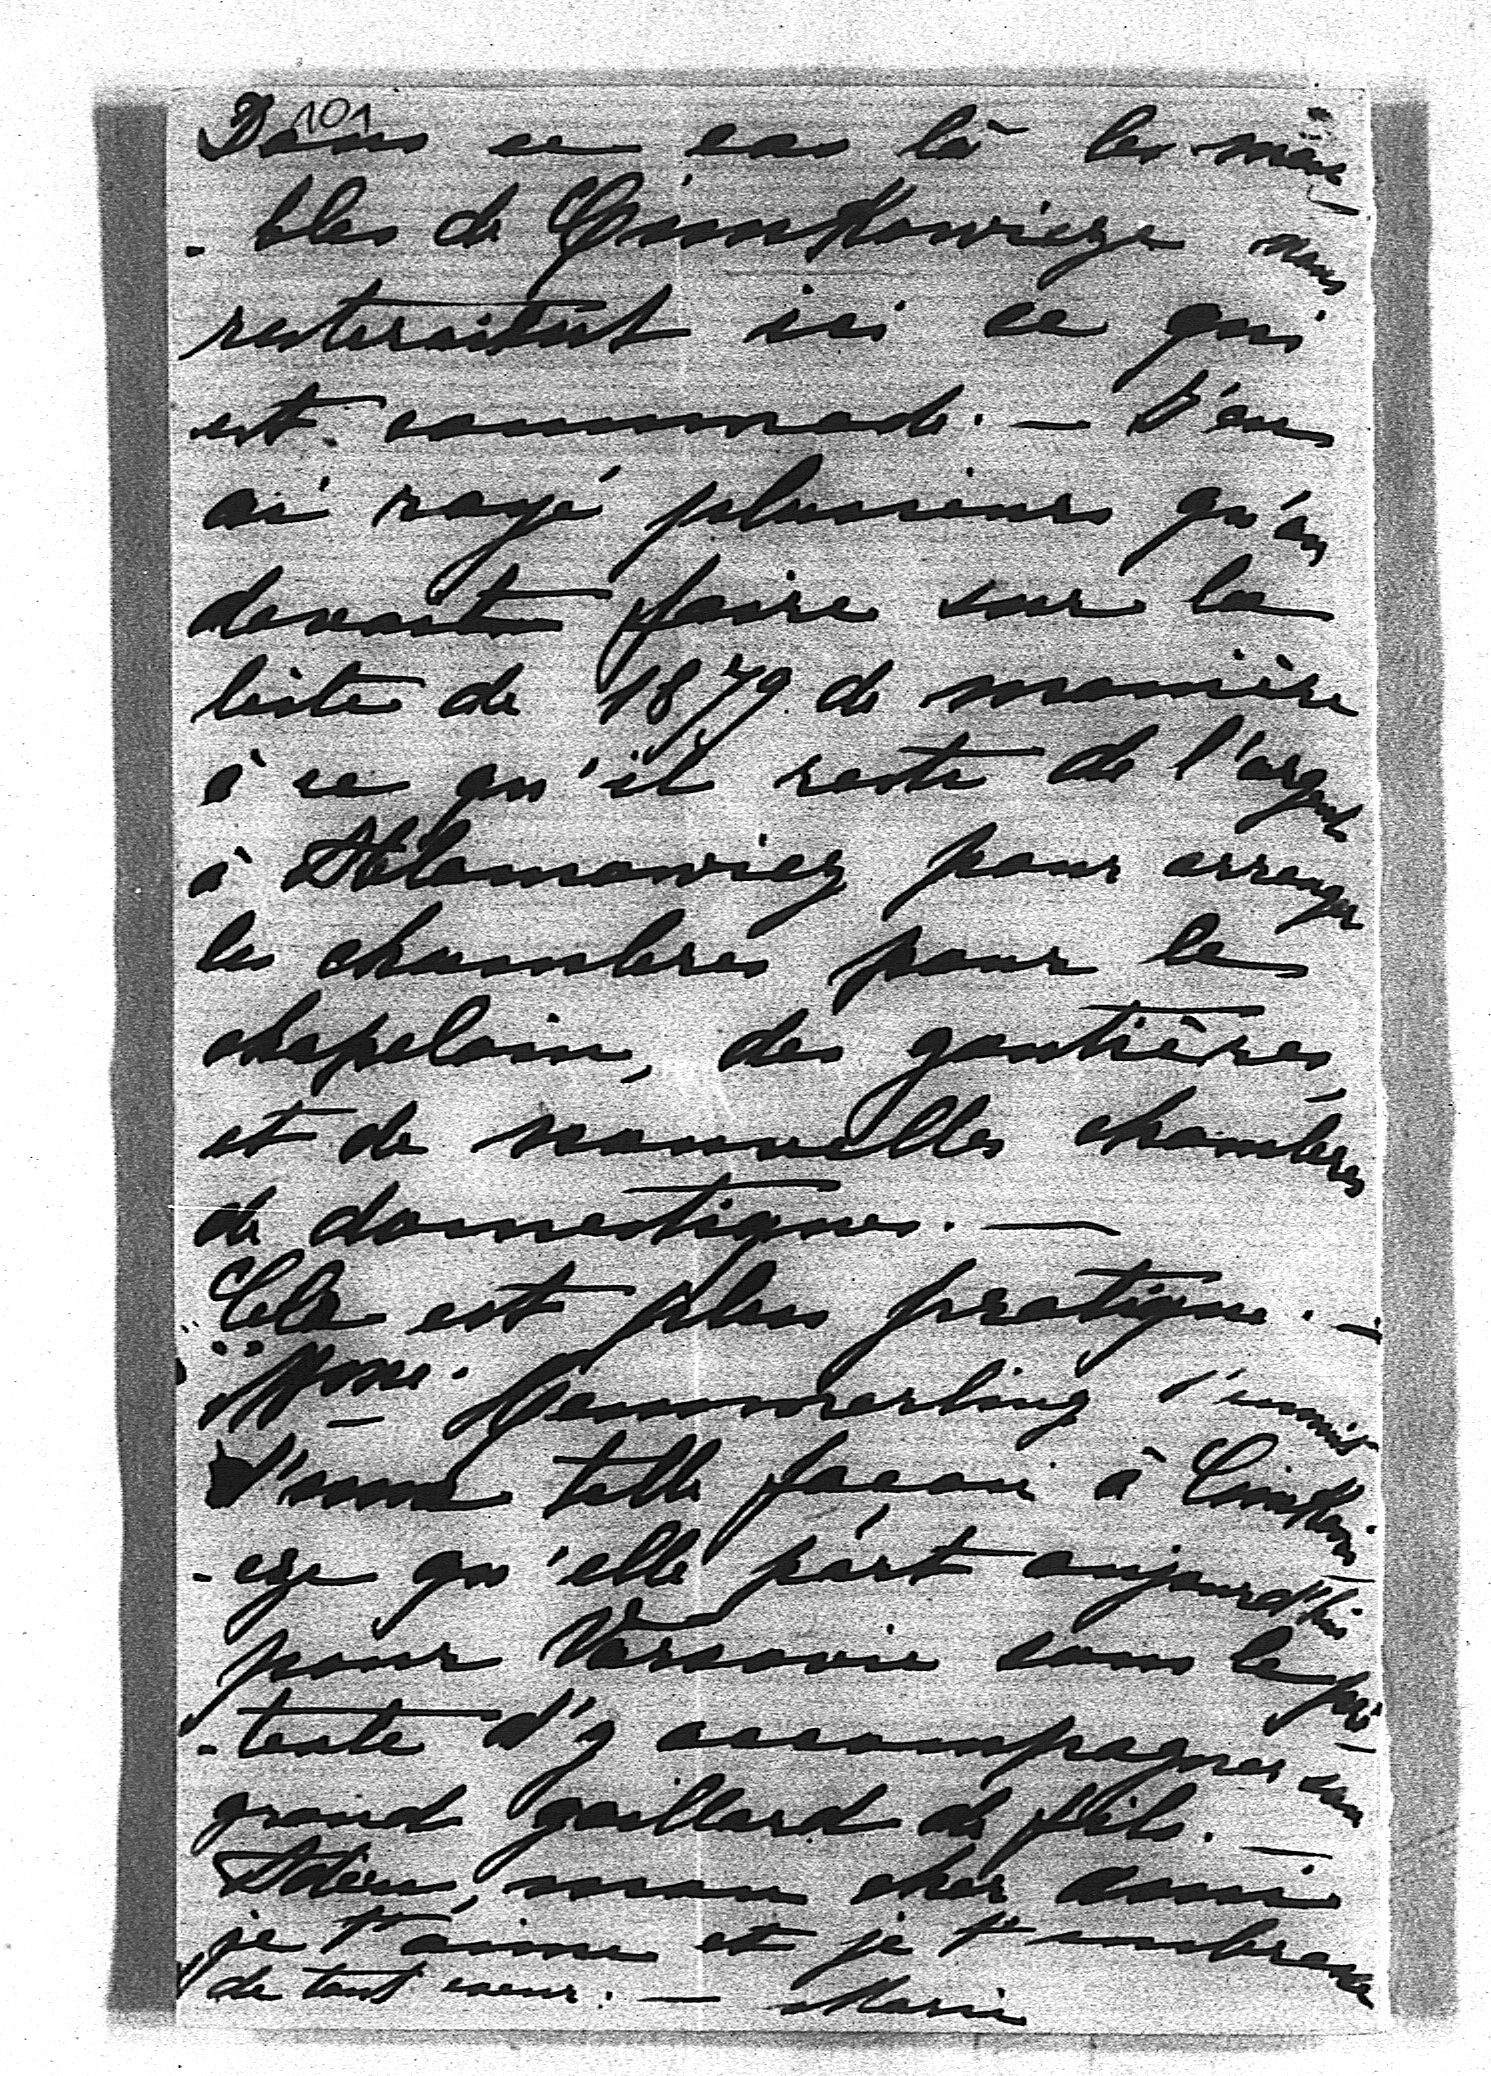 101
Dans ce cas là les meu
-bles de Cimkowicze nous
resteraient ici ce qui
est commode. — J'en
ai rayé plusieurs qu'on
devait faire sur la
liste de 1879 de manière
à ce qu'il reste de l'argent
à Adamowicz pour arranger
les chambres pour le
chapelain, des goutières,
et de nouvelles chambres
de domestiques. —
Cela est plus pratique. —
Mme. Hemmerling s'ennuie
d'une telle façon à Cimkowi
-cze qu'elle part aujourd'hui
pour Varsovie sous le pré
-texte d'y accompagner son
grand gaillard de fils. —
Adieu, mon cher ami
je t'aime et je t'embrasse
de tout coeur. — Marie